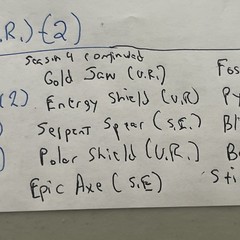 .R.) (2)
Season 4 continued
Gold Jaw (U.R.)
(2) Energy Shield (U.R)
Serpent Spear (S.E.)
Polar Shield (U.R.)
Epic Axe (S.E)
Fos
P
Bl
B
Sti